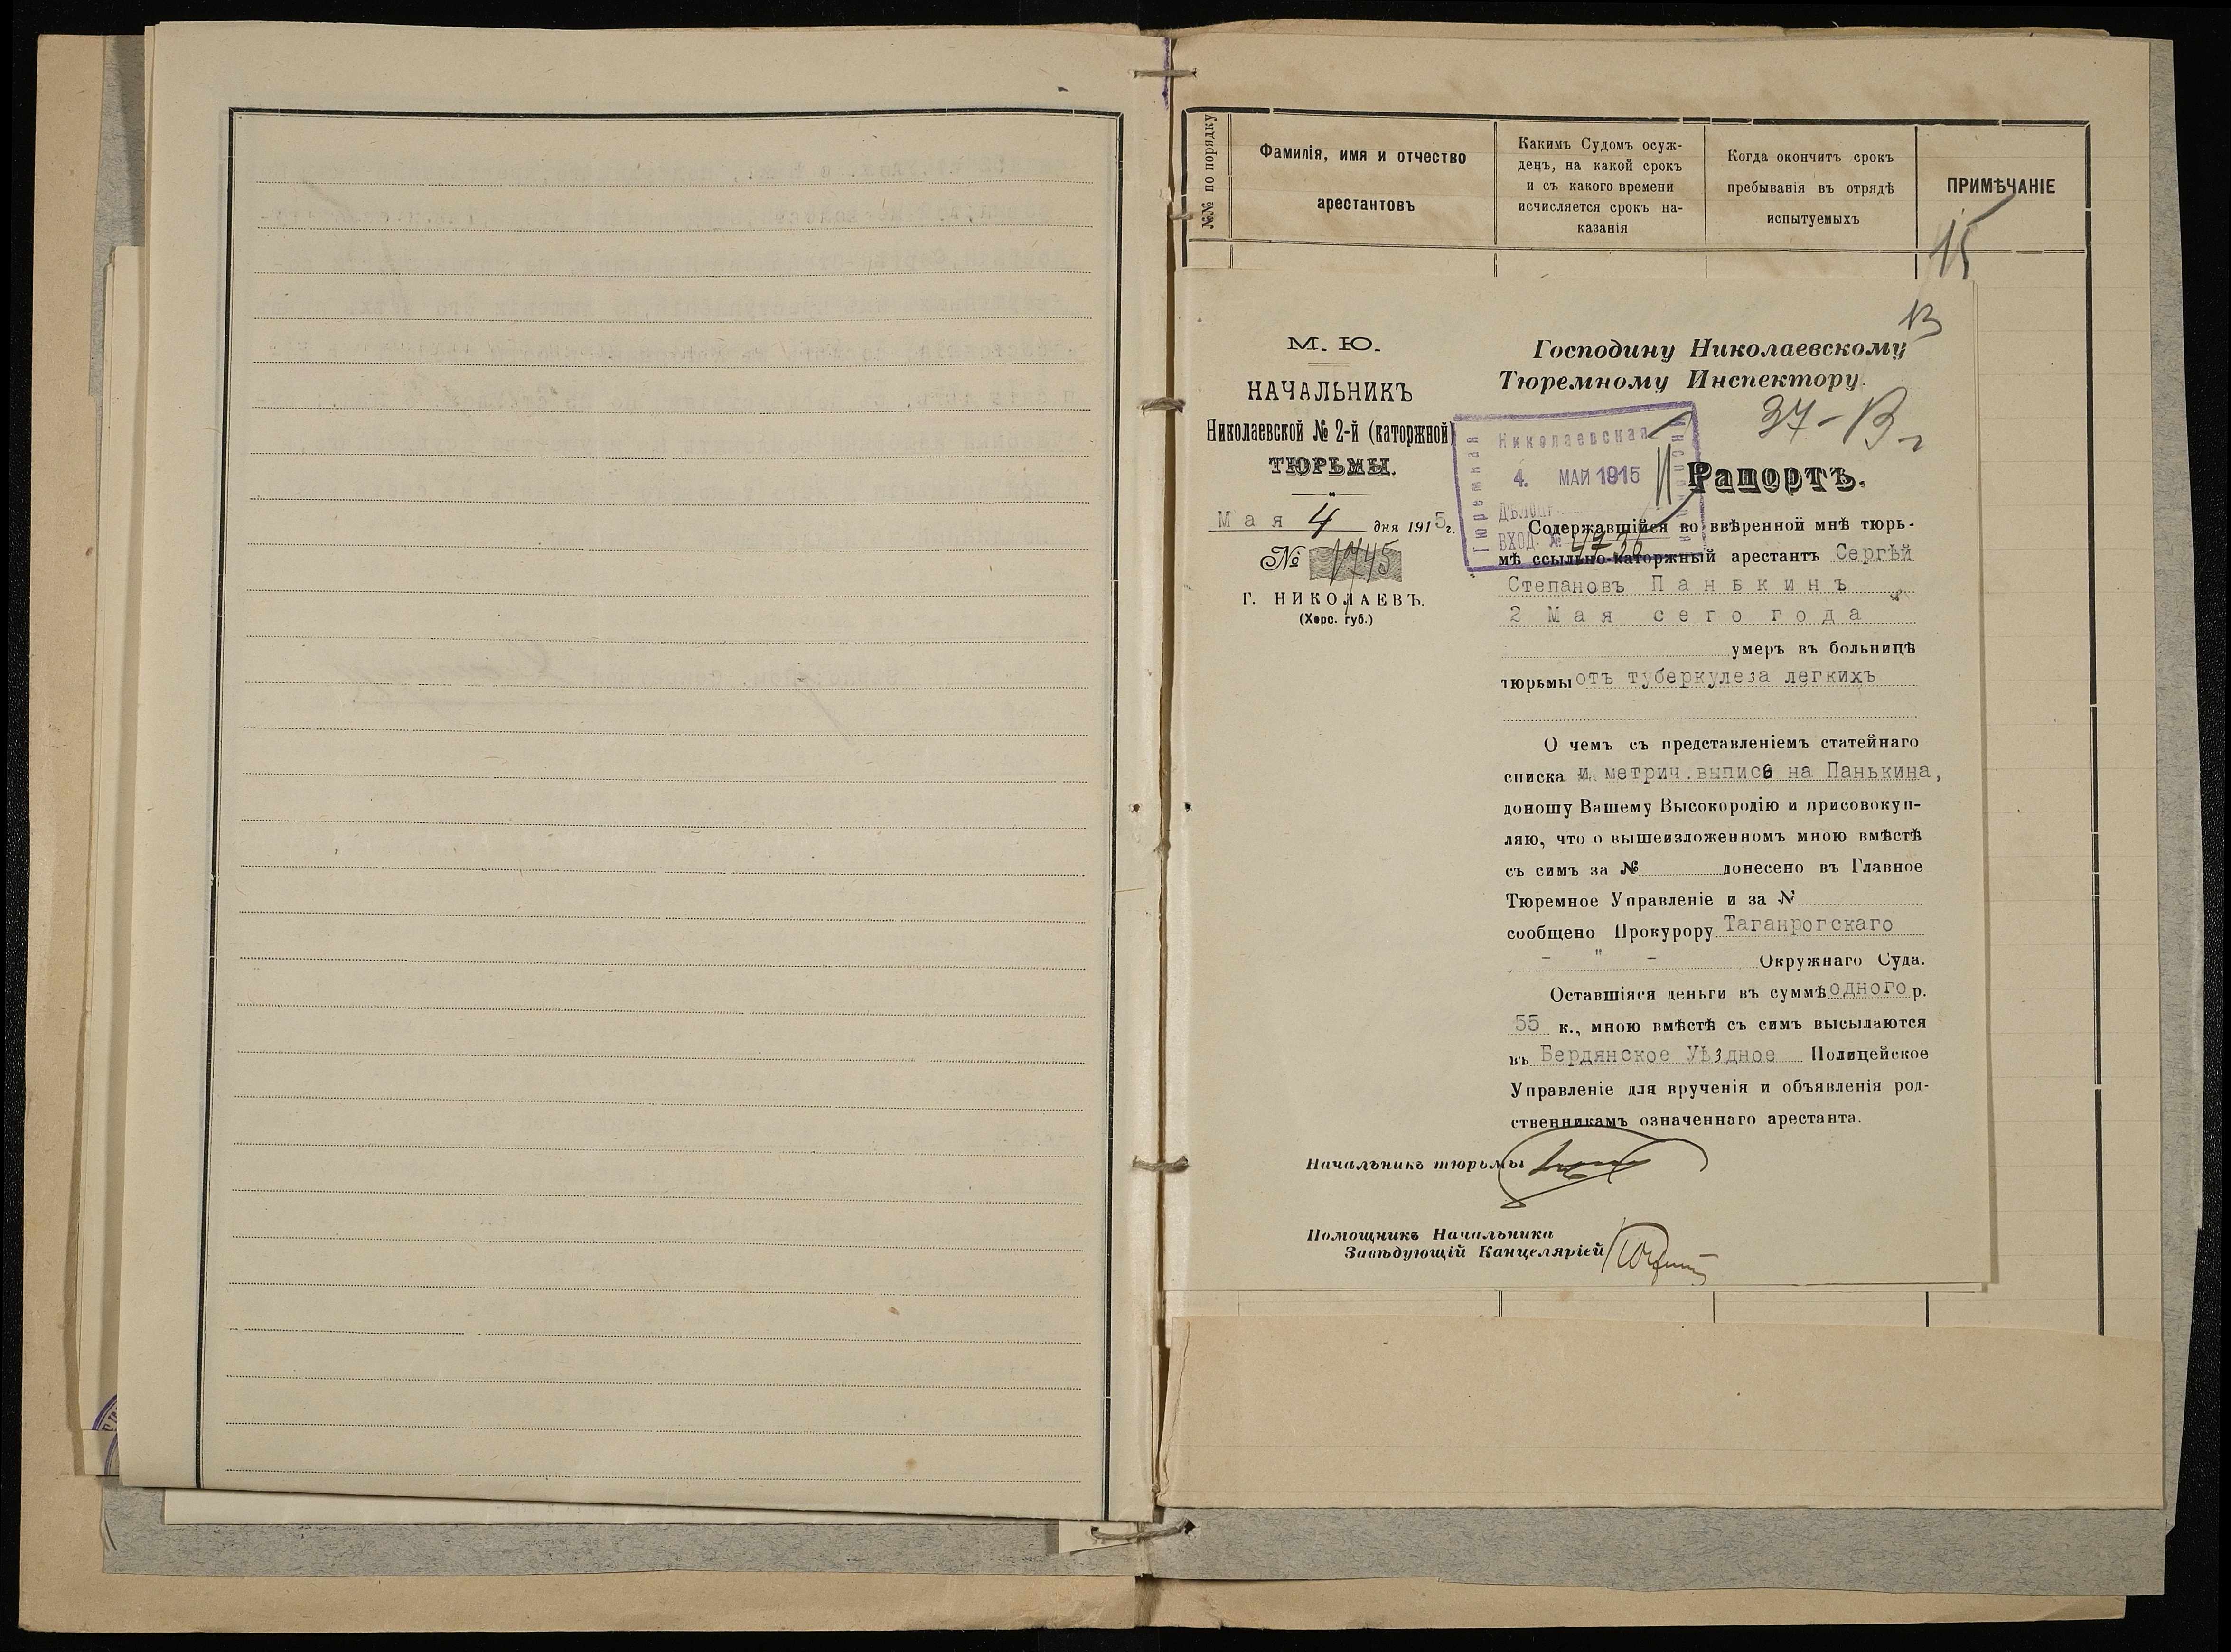 №№ по порядку
Фамилія, имя и отчество
арестантовъ
Какимъ Судомъ осуж-
денъ, на какой срокъ
и съ какого времени
исчисляется срокъ на-
казанія
Когда окончитъ срокъ
пребыванія въ отрядѣ
испытуемыхъ
ПРИМѢЧАНІЕ
15
13
М. Ю.
НАЧАЛЬНИКЪ
Николаевской № 2-й (каторжной)
ТЮРЬМЫ.
Мая 4 дня 1915 г.
№ 1745
Г. НИКОЛАЕВЪ.
(Херс. губ.)
Господину Николаевскому
Тюремному Инспектору.
Николаевская
Тюремная
4. МАЙ 1915
ВХОД. №
Рапортъ.
Содержавшійся во ввѣренной мнѣ тюрь-
мѣ ссыльно-каторжный арестантъ Сергѣй
Степановъ Панькинъ
2 Мая сего года
умеръ въ больницѣ
тюрьмы отъ туберкулеза легкихъ
О чемъ съ представленіемъ статейнаго
списка и метрич. выписе на Панькина,
доношу Вашему Высокородію и присовокуп-
ляю, что о вышеизложенномъ мною вмѣстѣ
съ симъ за № донесено въ Главное
Тюремное Управленіе и за №
сообщено Прокурору Таганрогскаго
- " - Окружнаго Суда.
Оставшіяся деньги въ суммѣ одного р.
55 к., мною вмѣстѣ съ симъ высылаются
въ Бердянское Уѣздное Полицейское
Управленіе для врученія и объявленія род-
ственникамъ означеннаго арестанта.
Начальникъ тюрьмы
Помощникъ Начальника
Завѣдующій Канцеляріей